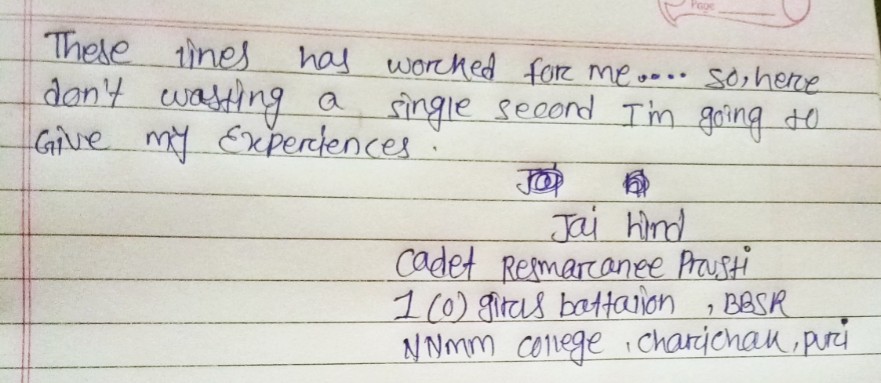 Page
These lines has worked for me.... so, here
don't wasting a single second I'm going to
Give my Experiences.
Jai hind
Cadet Resmaranee Prusti
1 (O) girls battalion , BBSR
NNmm college , charichhak, puri